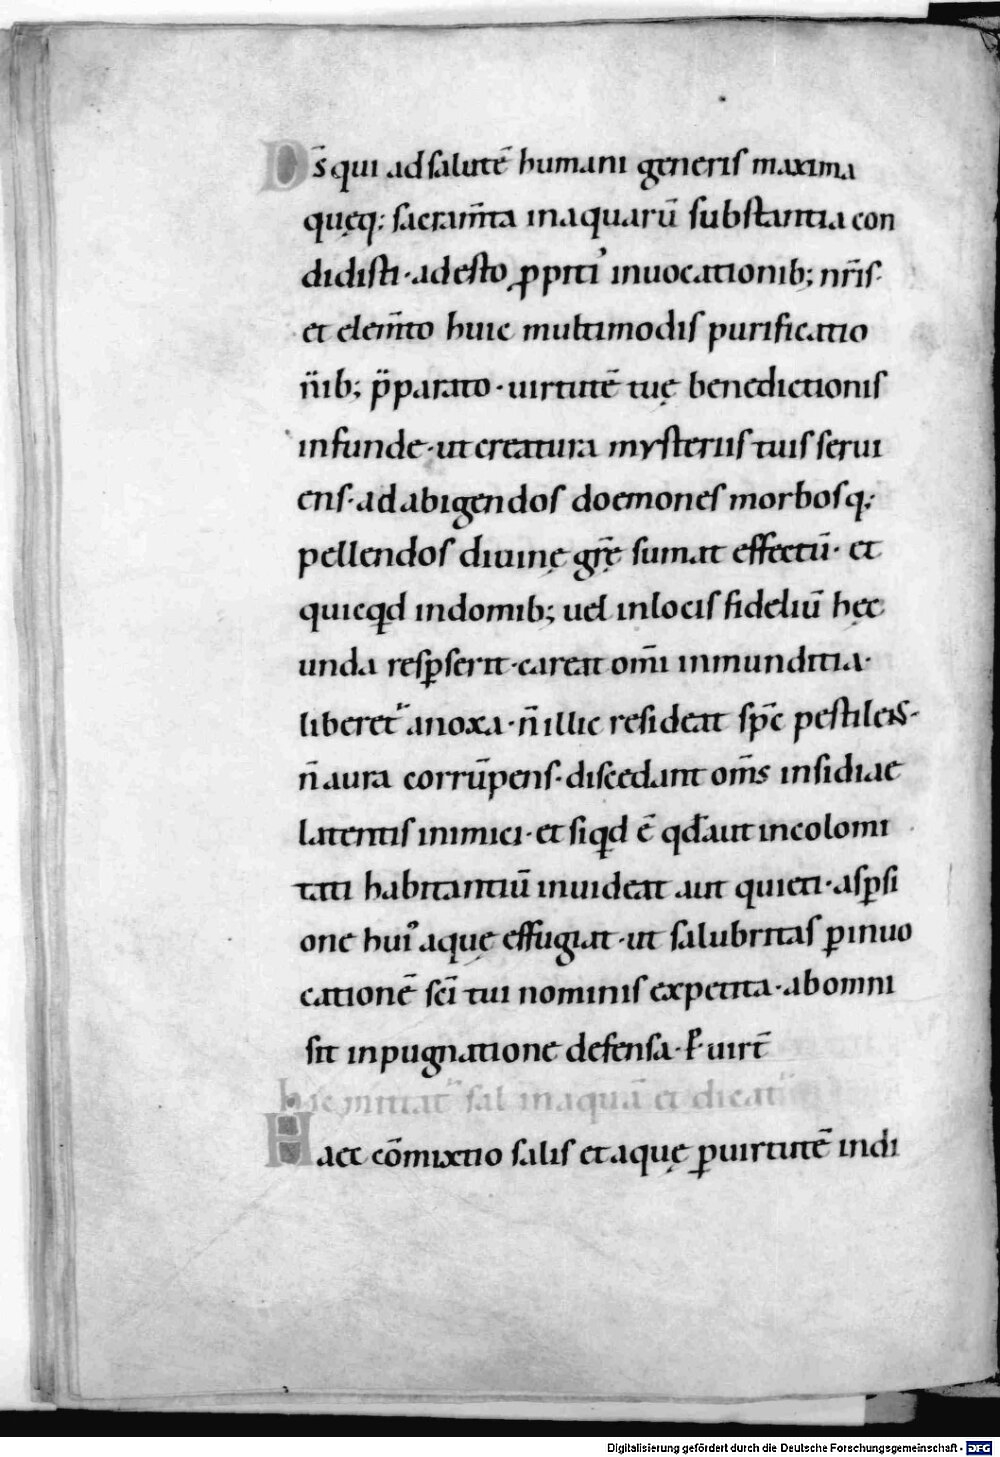 Ds̄ qui ad salutē humani generis maxima
quęq; sacram̄ta in aquarū substantia con
didisti · adesto ꝓpiti᾿ inuocationib; nr̄is ·
et elem̄to huic multimodis purificatio
nib; p̄parato · uirtutē tuę benedictionis
infunde · ut creatura mysteriis tuis serui
ens · ad abigendos doemones morbosq;
pellendos diuinę gr̄ę sumat effectū · et
quicq̇d in domib; uel in locis fideliū hęc
unda resꝑserit · careat om̄i inmunditia ·
liberet᷑ a noxa · n̄ illic resideat sp̄c pestilens ·
n̄ aura corrūpens · discedant om̄s insidiae
latentis inimici · et siqd ē qd̄ aut incolomi
tati habitantiū inuideat aut quieti · asꝑsi
one hui᾿ aquę effugiat · ut salubritas ꝑ inuo
cationē sc̄i tui nominis expetita · ab omni
sit inpugnatione defensa · P᷑ uirt̄
hic mittat᷑ sal in aquā et dicat᷑
Haec cōmixtio salis et aquę ꝑ uirtutē indi
Digitalisierung gefördert durch die Deutsche Forschungsgemeinschaft - DFG